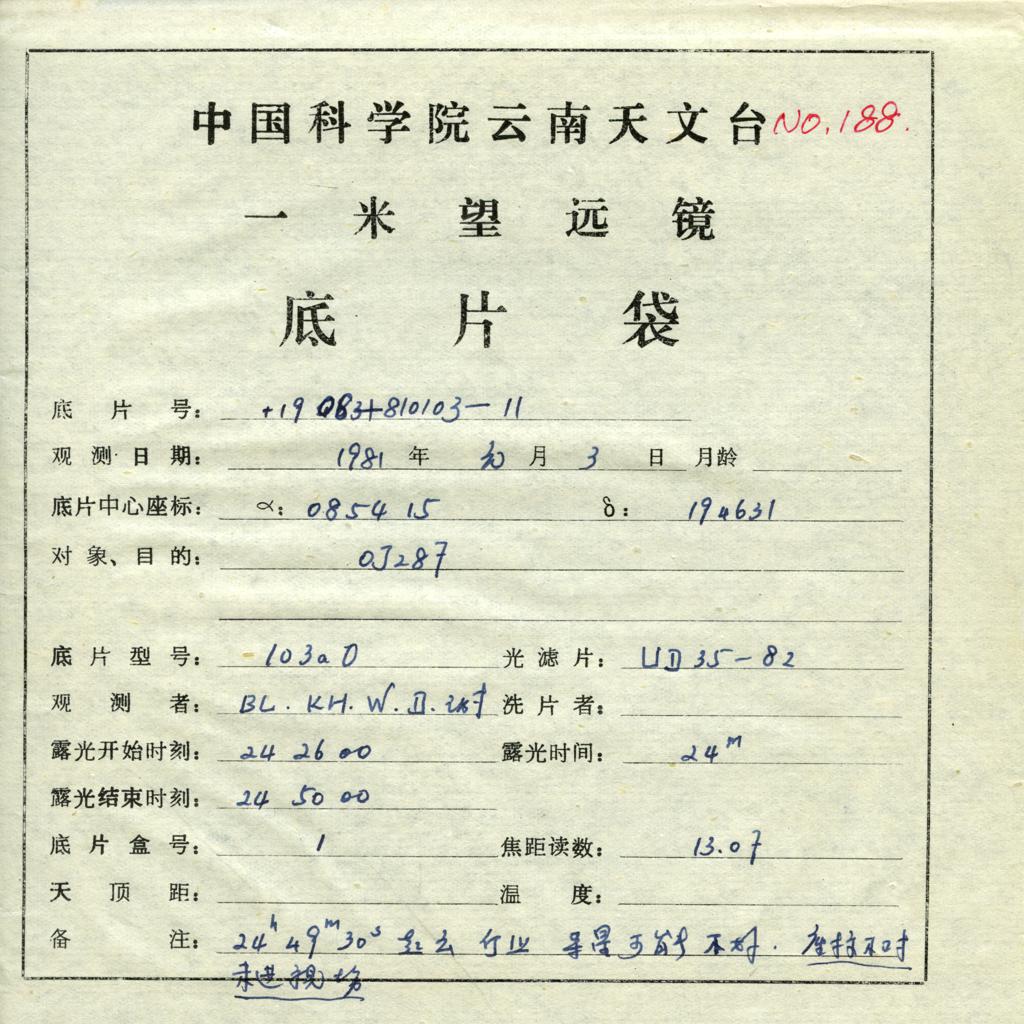 中国科学院云南天文台 NO.188.
一米望远镜
底片袋
底片号： +19 083+810103-11
观测日期： 1981 年 元 月 3 日 月龄
底片中心座标： α： 0854 15 δ： 194631
对象、目的： OJ287
底片型号： 103aD 光滤片： UD 35-82
观测者： BL. KH. W. D. 洗片者：
露光开始时刻： 24 26 00 露光时间： 24m
露光结束时刻： 24 50 00
底片盒号： 1 焦距读数： 13.07
天顶距： 温度：
备注： 24h 49m 30s 起云 停止 导星可能不对. 座标不对
未进视场